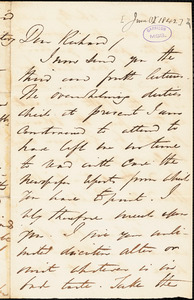 [June 1842?]
Dear Richard
I now send you the
third and fourth lectures.
The overwhelming duties
which at present I am
constrained to attend to
had left me no time
to read with care the
Newspaper report from which
you have to print. I
must therefore
you. I give you unli-
mited discretion alter or
omit whatever is in
bad taste. Take the